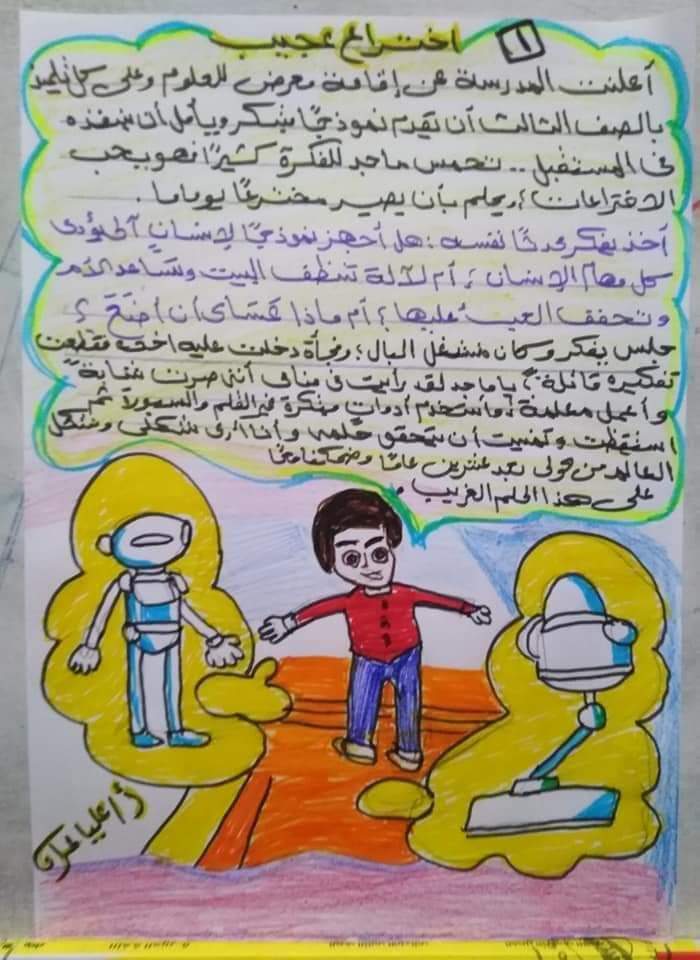 ١ اختراع عجيب
أعلنت المدرسة عن إقامة معرض للعلوم وعلى كل تلميذ
بالصف الثالث أن يقدم نموذجًا مبتكر ويأمل أن ينفذه
فى المستقبل .. تحمس ماجد للفكرة كثيرًا فهو يحب
الاختراعات ؛ ويحلم بأن يصير مخترعًا يوماما .
أخذ يفكر محدثًا نفسه : هل أجهز نموذجًا لإنسان آلى يؤدى
كل مهام الإنسان ؟ أم لآلة تنظف البيت وتساعد الأم
وتخفف العبء عليها ؟ أم ماذا عساى أن أصنع ؟
جلس يفكر وكان منشغل البال ؛ وفجأة دخلت عليه اخته فقطعت
تفكيره قائلة : يا ماجد لقد رأيت فى منامى أننى صرت شابة
وأعمل معلمة وأستخدم أدوات مبتكرة غير القلم والسبورة ثم
استيقظت وتمنيت أن يتحقق حلمى وأنا أرى شكلى وشكل
العالم من حولى بعد عشرين عامًا وضحكنا معًا
على هذا الحلم الغريب .
أ/ علياء